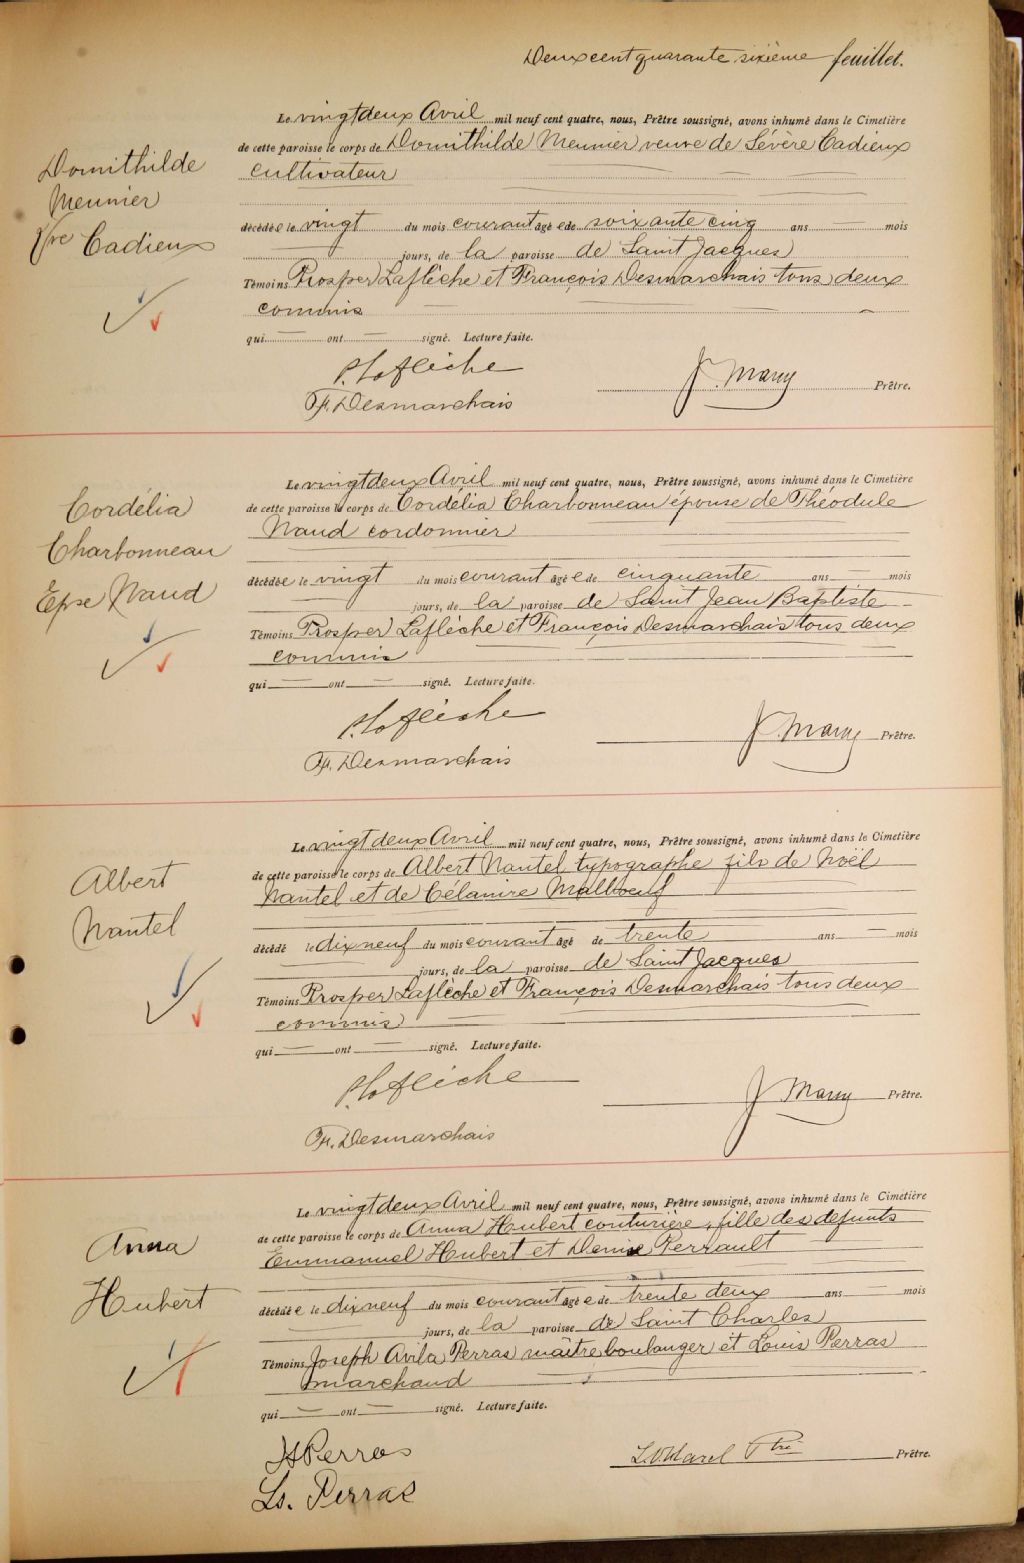 Deux cent quarante sixième feuillet.
Domithilde
Meunier
Vve Cadieux
Le vingt deux Avril mil neuf cent quatre, nous, Prêtre soussigné, avons inhumé dans le Cimetière
de cette paroisse le corps de Domithilde Meunier veuve de Sévère Cadieux
cultivateur
décédée le vingt du mois courant âgée de soixante cinq ans — mois
jours, de la paroisse de Saint Jacques
Témoins Prosper Laflèche et François Desmarchais tous deux
commis
qui — ont — signé. Lecture faite.
P. Laflèche
F. Desmarchais
Prêtre.
Cordélia
Charbonneau
Epse Naud
Le vingt deux Avril mil neuf cent quatre, nous, Prêtre soussigné, avons inhumé dans le Cimetière
de cette paroisse le corps de Cordélia Charbonneau épouse de Théodule
Naud cordonnier
décédée le vingt du mois courant âgée de cinquante ans — mois
jours, de la paroisse de Saint Jean Baptiste
Témoins Prosper Laflèche et François Desmarchais tous deux
commis
qui — ont — signé. Lecture faite.
P. Laflèche
F. Desmarchais
Prêtre.
Albert
Nantel
Le vingt deux Avril mil neuf cent quatre, nous, Prêtre soussigné, avons inhumé dans le Cimetière
de cette paroisse le corps de Albert Nantel typographe fils de Noël
Nantel et de Célanire Malboeuf
décédé le dix neuf du mois courant âgé de trente ans — mois
jours, de la paroisse de Saint Jacques
Témoins Prosper Laflèche et François Desmarchais tous deux
commis
qui — ont — signé. Lecture faite.
P. Laflèche
F. Desmarchais
Prêtre.
Anna
Hubert
Le vingt deux Avril mil neuf cent quatre, nous, Prêtre soussigné, avons inhumé dans le Cimetière
de cette paroisse le corps de Anna Hubert couturière, fille des defunts
Emmanuel Hubert et Denise Perrault
décédée le dix neuf du mois courant âgée de trente deux ans — mois
jours, de la paroisse de Saint Charles
Témoins Joseph Avila Perras maître boulanger et Louis Perras
marchand
qui — ont — signé. Lecture faite.
JA Perras
Ls. Perras
Ptre Prêtre.